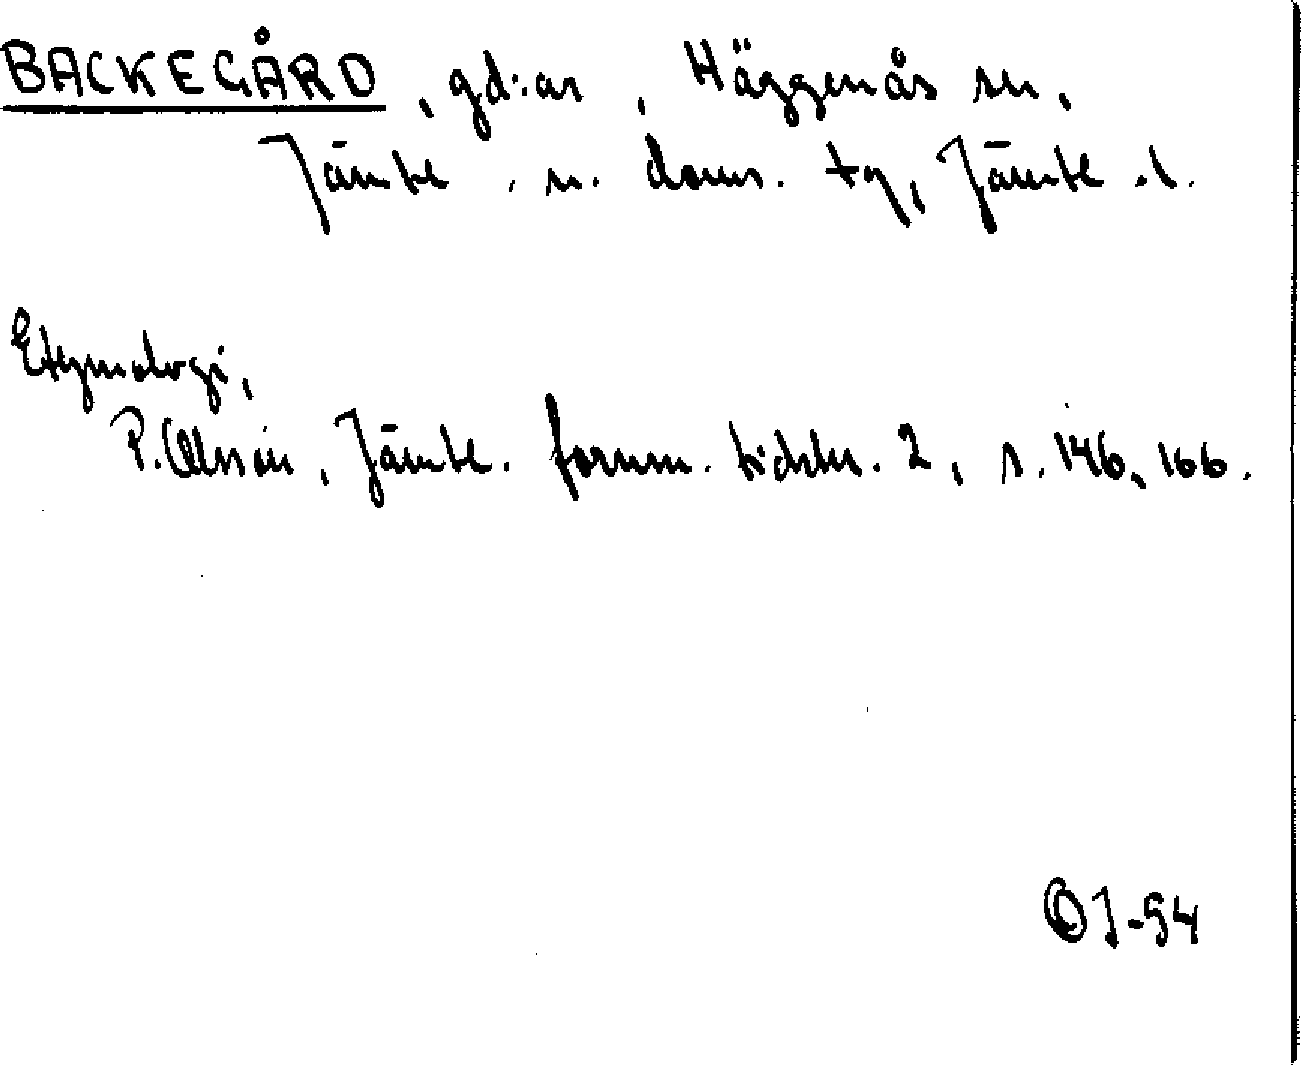 BACKEGÅRD, gd:ar, Häggenås sn,
Jämtl. n. doms. tg, Jämtl. l.
Etymologi,
P. Olsson, Jämtl. fornm. tidskr. 2, s. 146, 166.
OJ-54